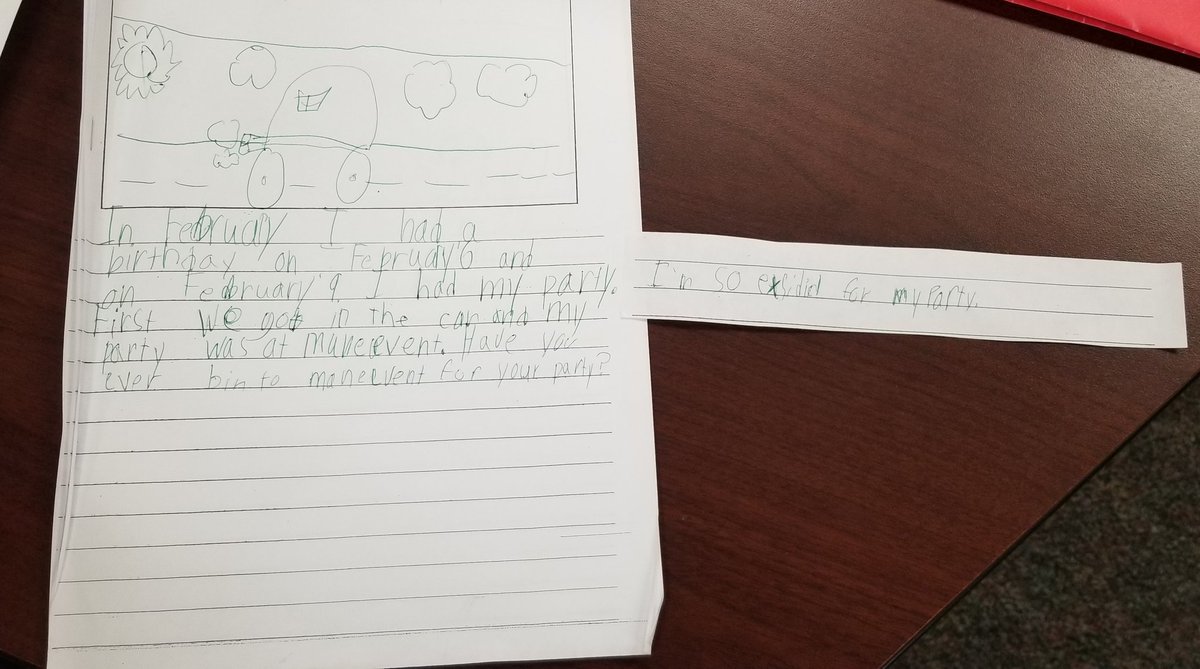 In February I had a
birthday on Feprudy 6 and
on February 9. I had my party.
First we got in the car and my
party was at manevent. Have you
ever bin to manevent for your party?
I'm so exsidid for my Party.